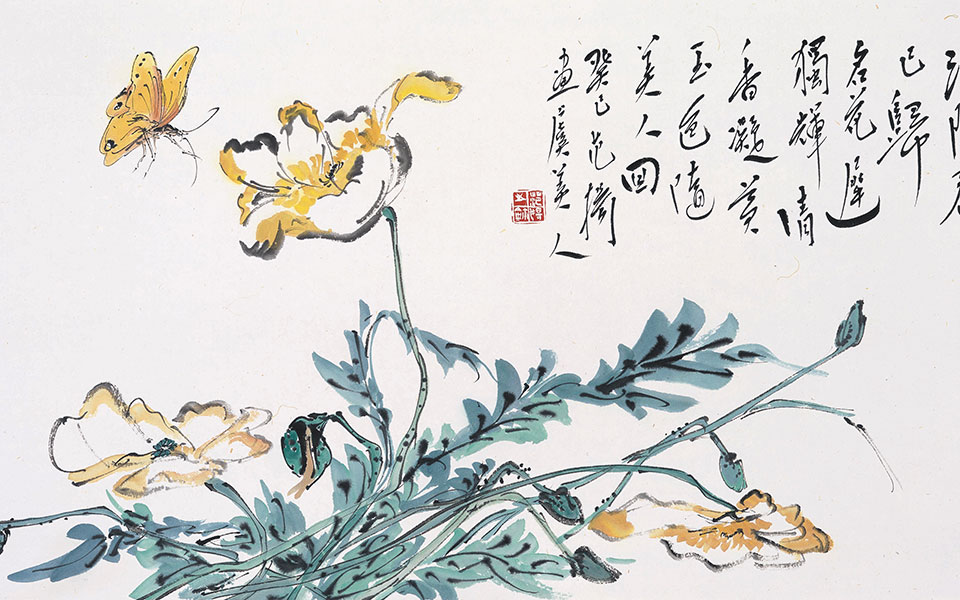 春
已歸
名花遲
獨輝清
香凝黃
玉色隨
美人回
癸巳范
畫虞美人